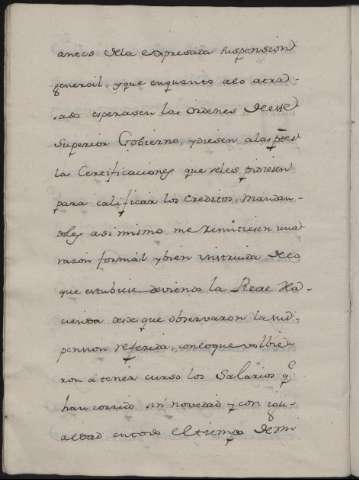 antes de la expresada suspension
general, y que en quanto a lo atra-
sado esperasen las ordenes de esse
Superior Govierno, y diesen a las ptes
las Certificaciones que seles pidiesen
para calificar los creditos, mandan-
doles asi mismo me remitiesen una
razon formal y bien instruida de lo
que estubiese deviendo la Real Ha-
cienda desde que observaron la sus-
pension referida, con lo que volvie-
ron a tener curso los Salarios q.e
han corrido sin novedad y con igu-
aldad en todo el tiempo de mi